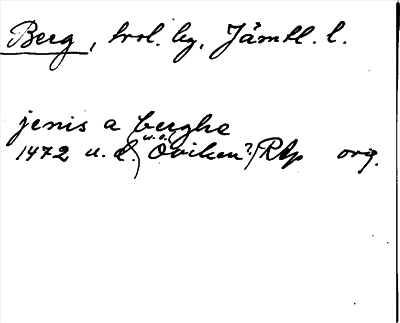 Berg, hvl. kg, Jämtl. l.
jenis a berghe
1472 u. d. (u. o. Oviken?) RAp org.